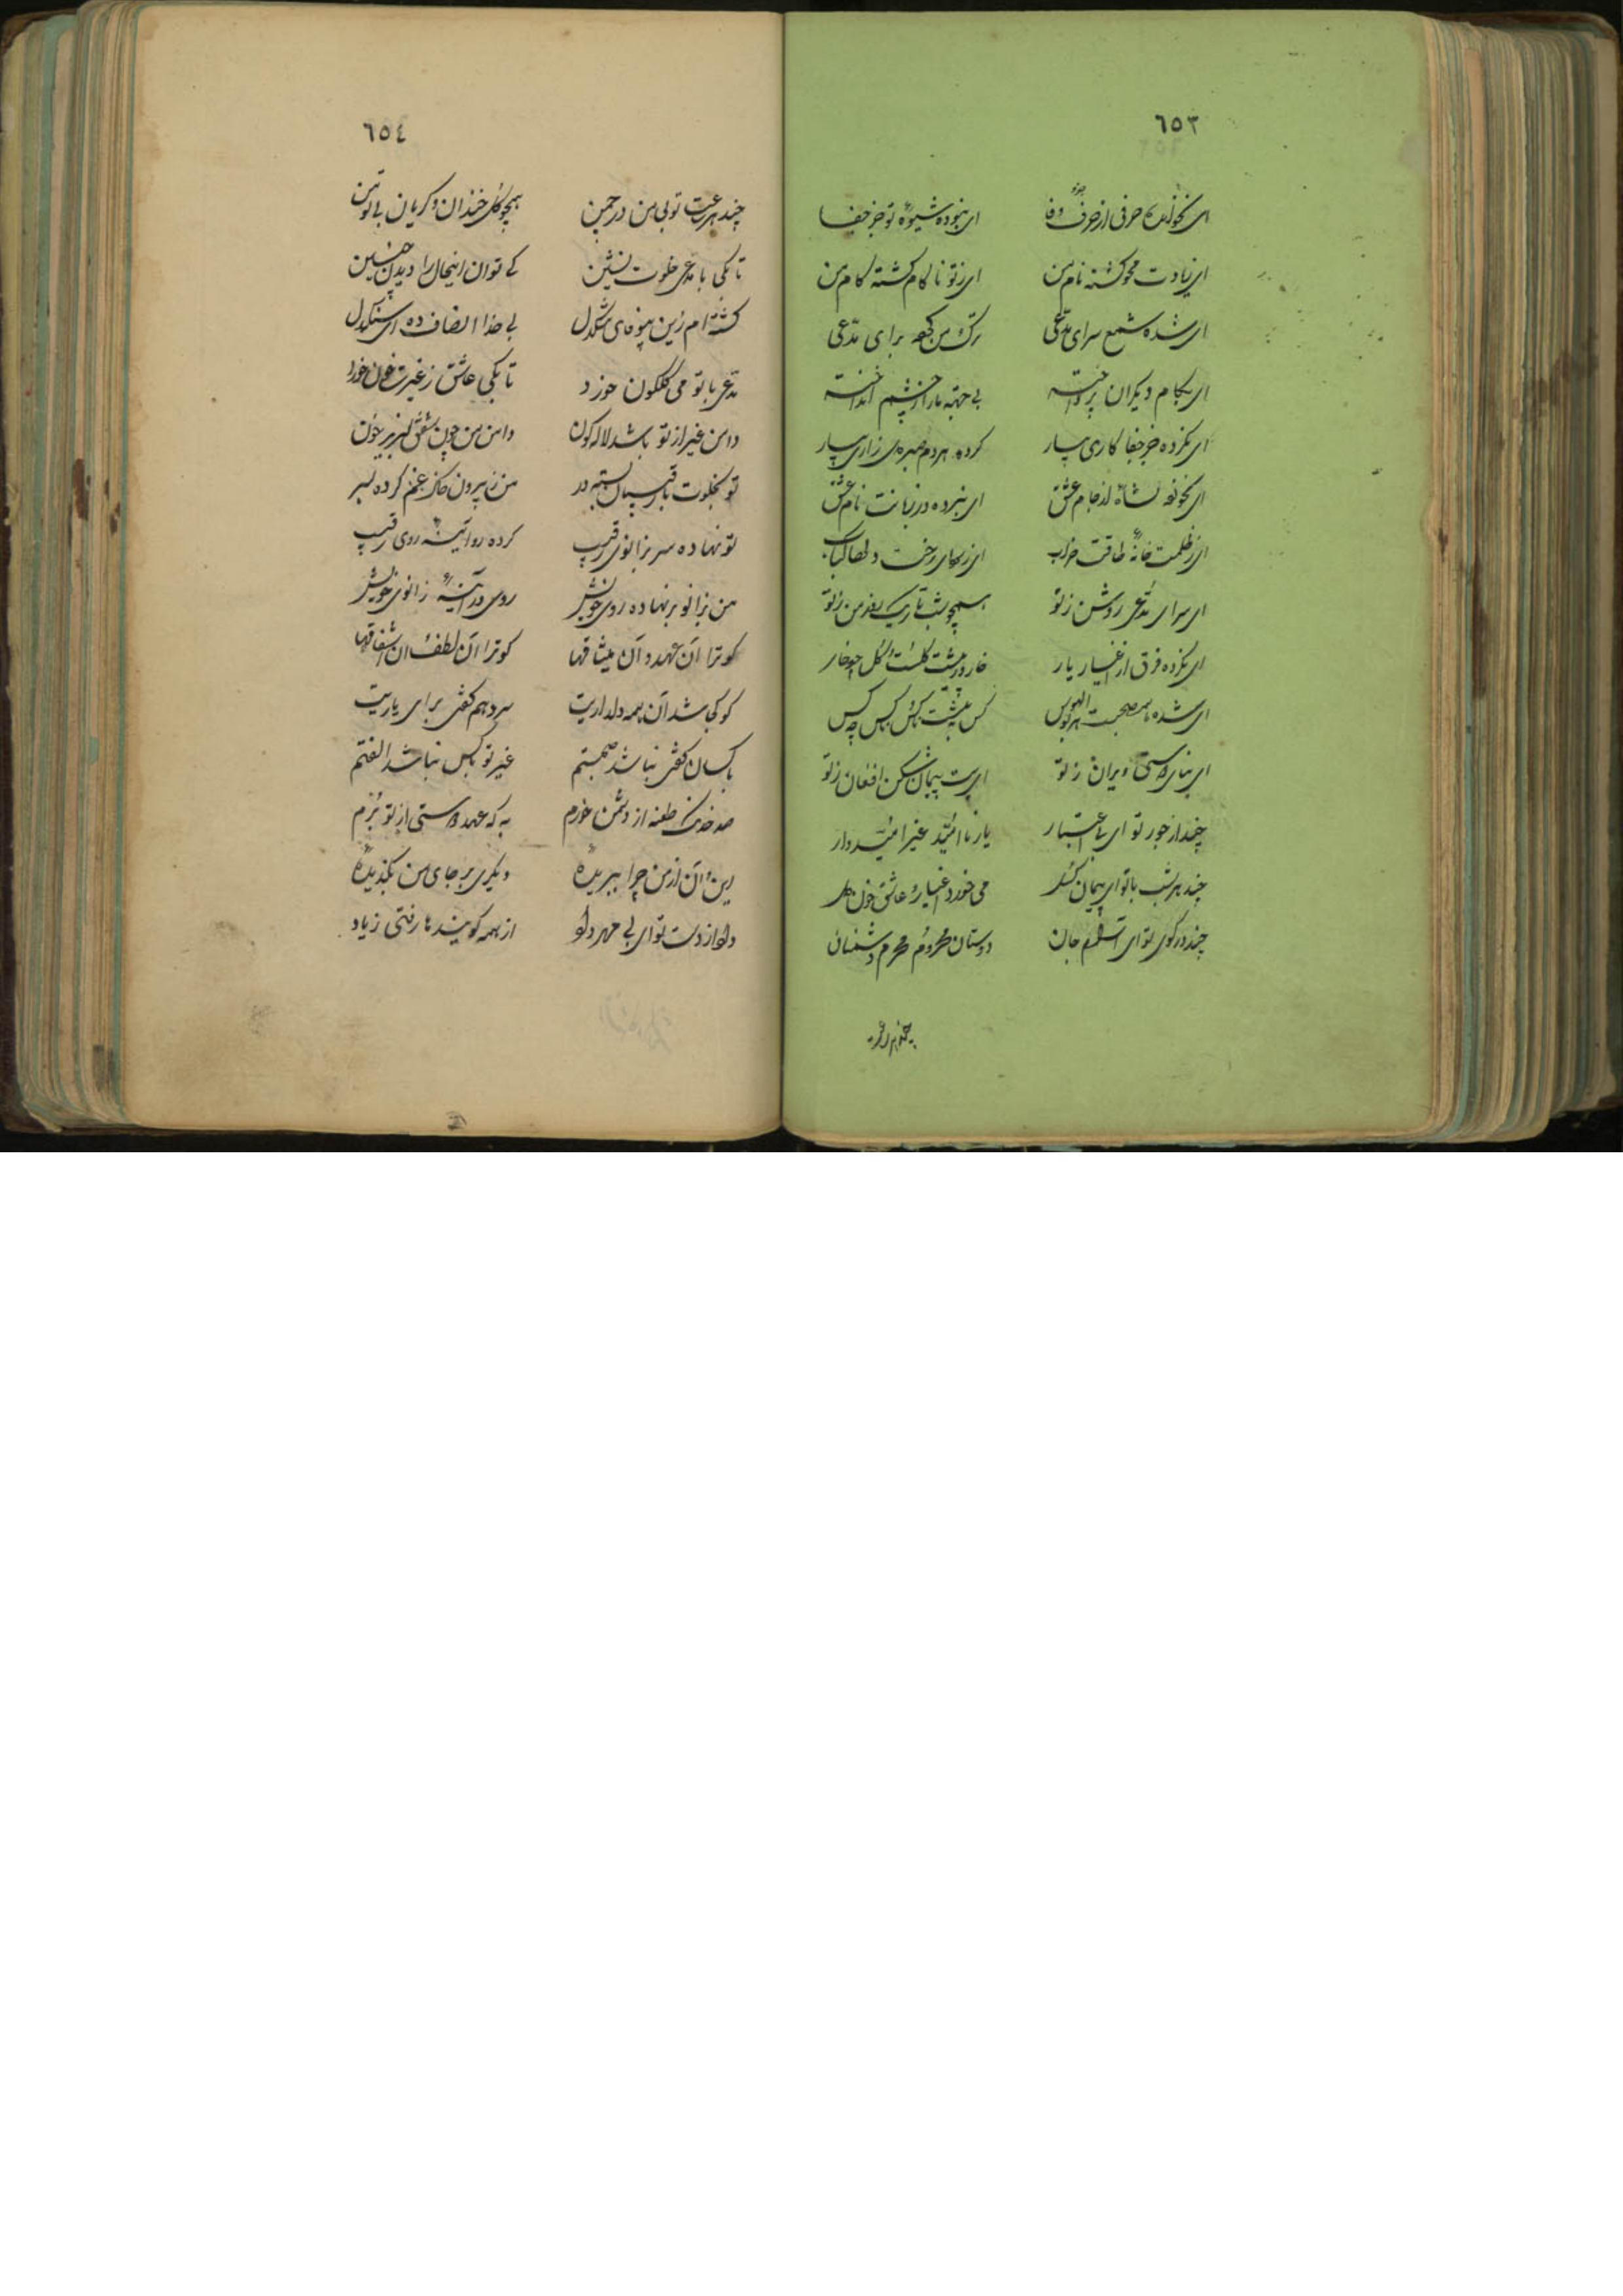 ٦٥٣
ای نخوانده حرفی از حرف وفا ای نبوده شیوهٔ تو جز جفا
ای زیادت محو گشته نام من ای ز تو ناکام گشته کام من
ای شده شمع سرای مدّعی ترک من کرده برای مدّعی
ای بکام دیکران پرداخته بی جهته ما را ز چشم انداخته
ای نکرده جز جفا کاری بسیار کرده هر دم زاری بسیار
ای نخورده نشاهٔ از جام عشق ای نبرده در زبانت نام عشق
ای ز ظلمت خانهٔ طاقت خراب ای ز رخت دلها کباب
ای سرای مدّعی روشن ز تو همچو شب تاریک روز من ز تو
ای نکرده فرق از اغیار یار خار در پیشت کلست و کل چو خار
ای شده هم صحبت هر بوالهوس کس به پیشت ناکس و ناکس چه کس
ای بنای دوستی ویران ز تو ای بت پیمان شکن افغان ز تو
چند از جور تو ای بی اعتبار یار نا امّید غیر امّیدوار
چند هر شب با تو ای پیمان کسل می خورد اغیار و عاشق خون دل
چند در کوی تو ای آشوب جان دوستان محروم و محرم دشمنان
چند هر ساعت
٦٥٤
چند هر ساعت تو بی من در چمن همچو کل خندان و کریان بی تو من
تا بکی با مدعی خلوت نشین کی توان اینحال را دیدن چنین
کشته ام زین بیوفای سنکدل بی خدا انصاف ده ای سنکدل
مدّعی با تو می کلکون خورد تا بکی عاشق ز غیرت خون خورد
دامن غیر از تو باشد لاله کون دامن من چون شفق لبریز خون
تو بخلوت با رقیبان بسته در من ز بیرون خاک غم کرده بسر
تو نهاده سر بزانوی رقیب کرده رو آئینهٔ روی رقیب
من بزانو بر نهاده روی خویش روی در آئینهٔ زانوی خویش
کو ترا آن عهد و آن میثاقها کو ترا آن لطف و آن اشفاقها
کو کجا شد آن همه دلداریت سر دهم کفتی برای یاریت
با کسان کفتی نباشد صحبتم غیر تو با کس نباشد الفتم
صد خدنک طعنه از دشمن خورم به که عهد دوستی از تو برم
این و آن از من چرا ببریدهٔ دیکری بر جای من بکزیدهٔ
داد از دست تو ای بی مهر داد از همه کویند ما رفتی ز یاد